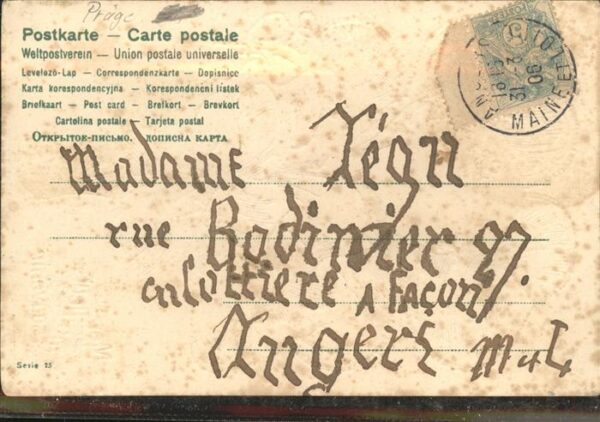 Práge
Postkarte — Carte postale
Weltpostverein — Union postale universelle
Levelező-Lap — Correspondenzkarte — Dopisnice
Karta korespondencyjna — Korespondenční lístek
Briefkaart — Post card — Brefkort — Brevkort
Cartolina postale — Tarjeta postal
Открытое-письмо, дописна карта
Madame Légu
rue Bodinier 27.
culottière A FAÇON
Angers M et L
MAINE
Serie 25